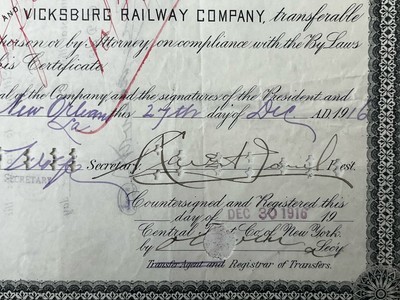 AND VICKSBURG RAILWAY COMPANY, transferable
or by Attorney on compliance with the By Laws
is Certificate
al of the Company and the signatures of the President and
New Orleans La this 27th day of Dec A.D. 1916
Secretary Prest.
SECRETARY
Countersigned and Registered this
day of DEC 30 1916 19
Central Trust Co. of New York
by Secy
Transfer Agent and Registrar of Transfers.